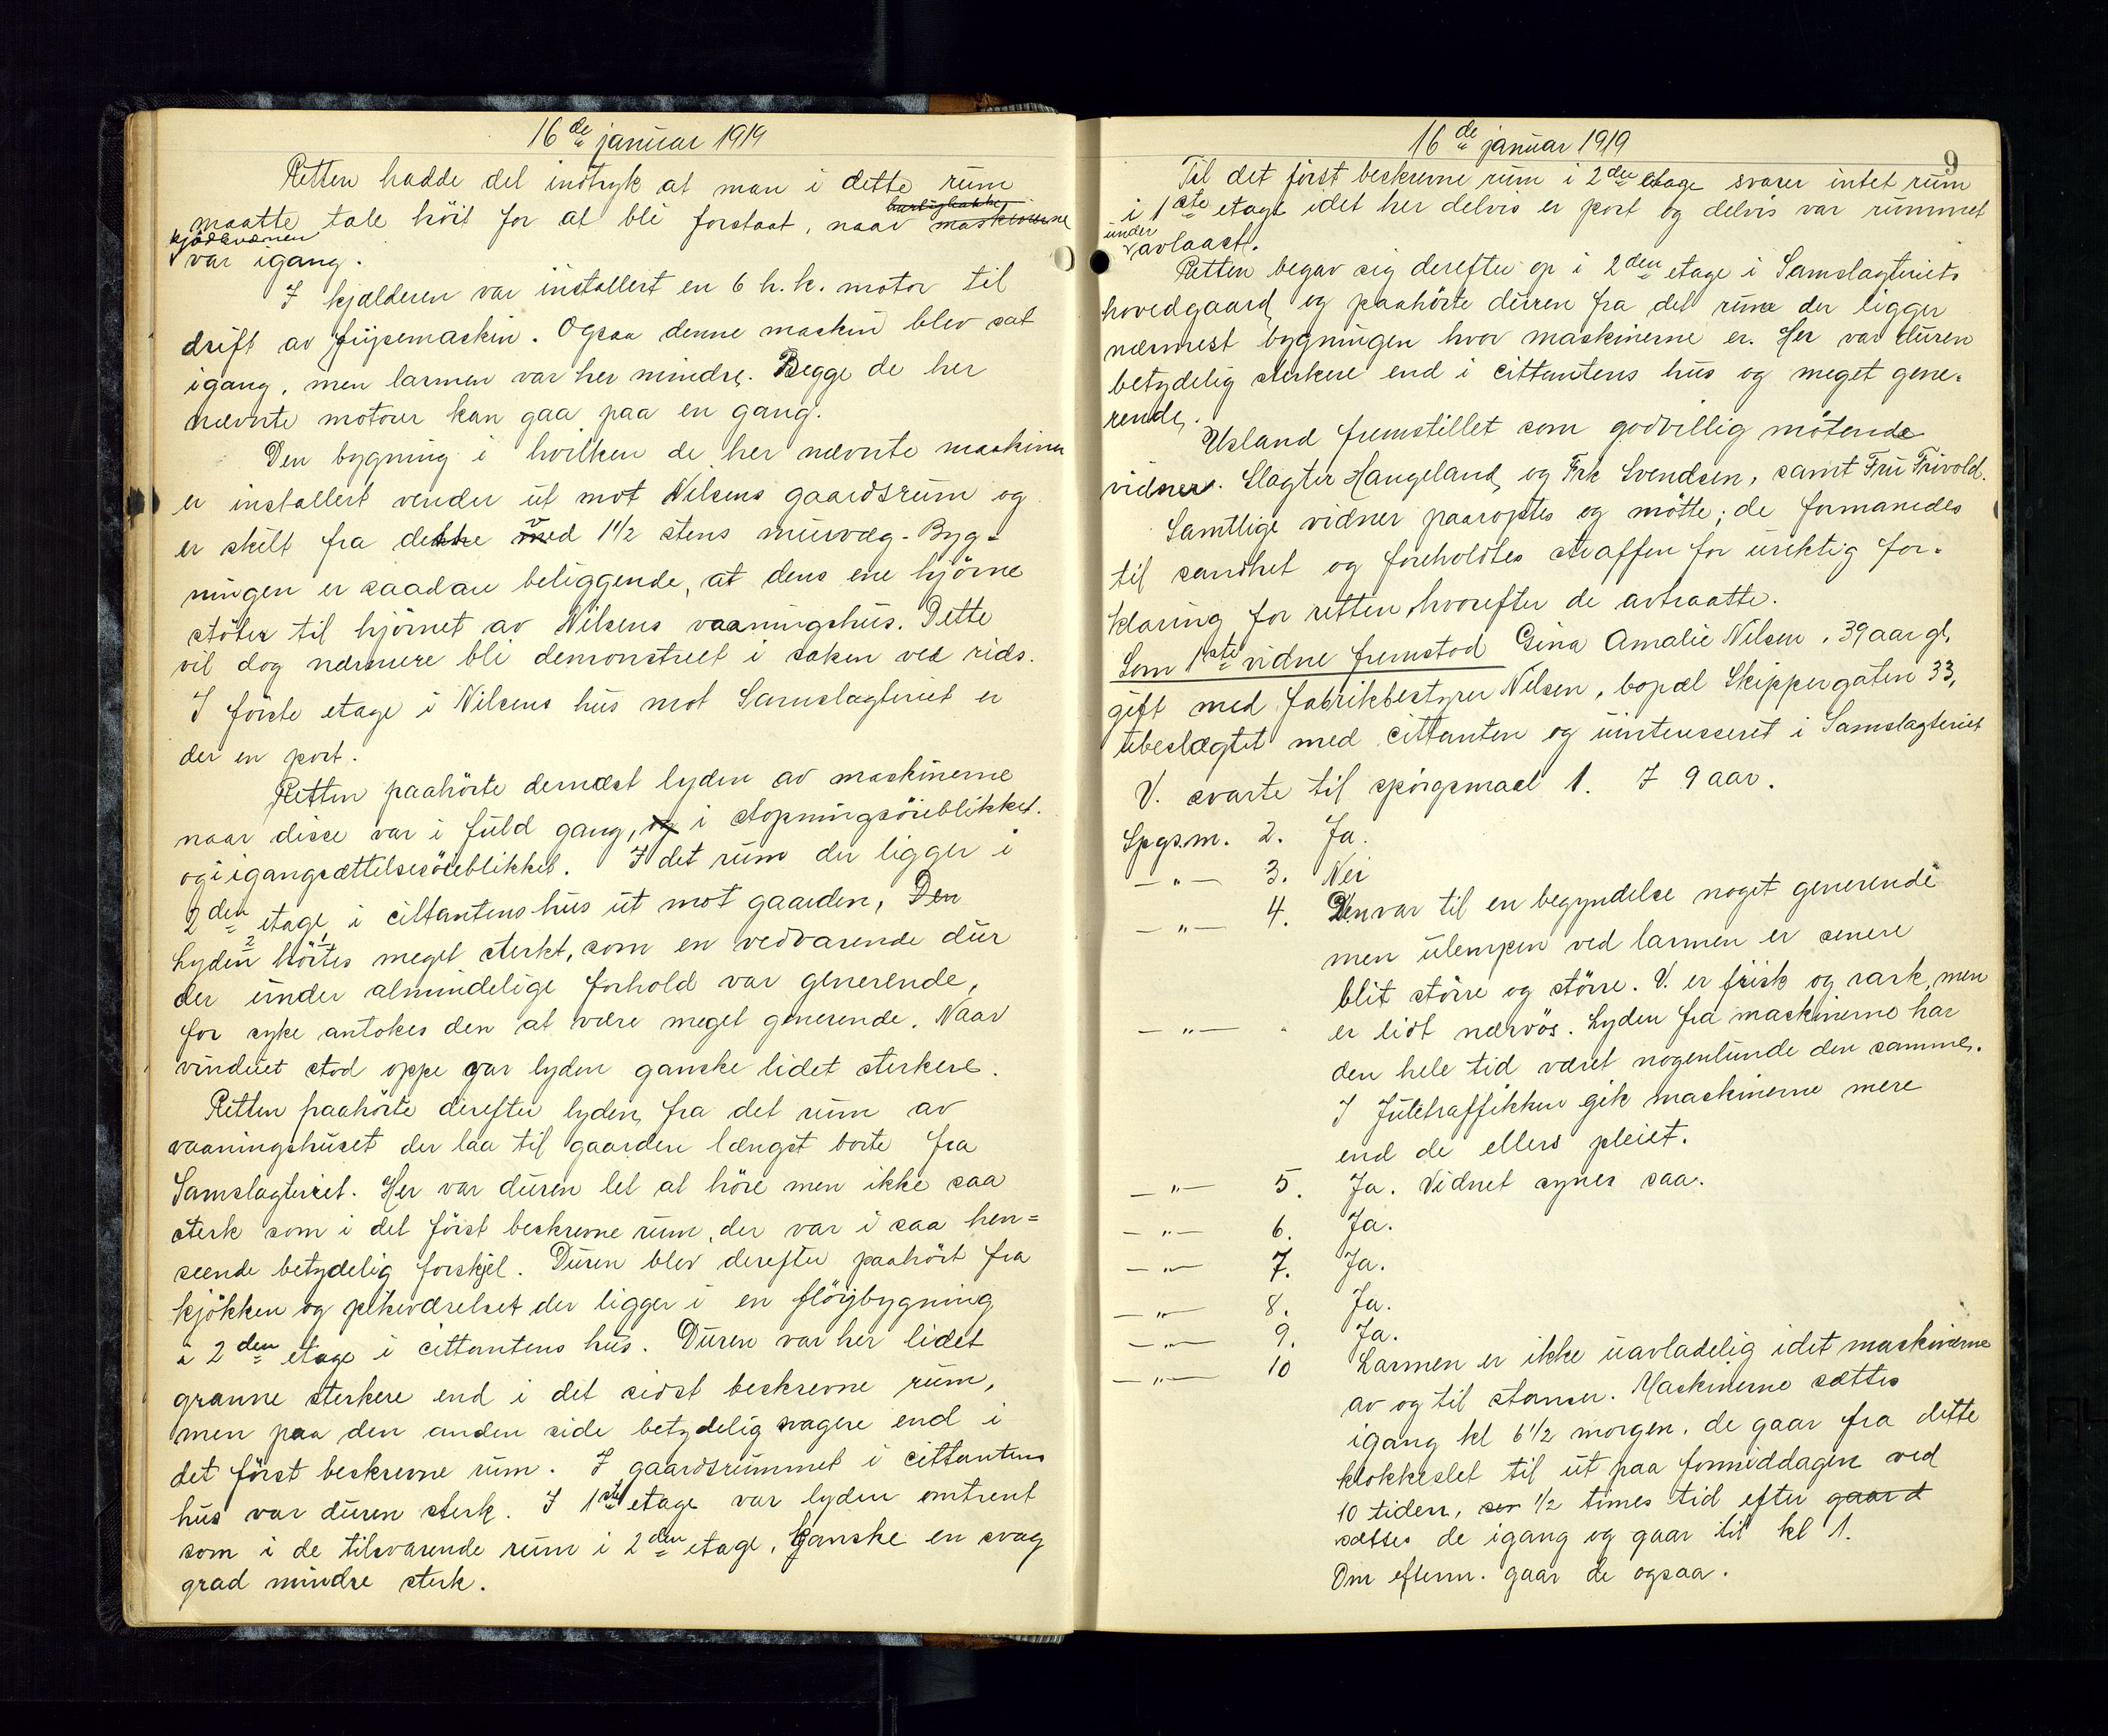 16de januar 1919
Retten hadde det indtryk at man i dette rum
hurtighakke
maatte tale höit for at bli forstaat, naar maskinerne
kjödkvernen
var igang.
I kjælderen var installert en 6 h.k. motor til
drift av frysemaskin. Ogsaa denne maskin blev sat
igang, men larmen var her mindre. Begge de her
nævnte motorer kan gaa paa en gang.
Den bygning i hvilken de her nævnte maskiner
er installert vender ut mot Nilsens gaardsrum og
er skilt fra dette ved 1 1/2 stens murvæg. Byg-
ningen er saadan beliggende, at dens ene hjörne
stöter til hjörnet av Nilsens vaaningshus. Dette
vil dog nærmere bli demonstreret i saken ved rids.
I förste etage i Nilsens hus mot Samslagteriet er
der en port.
Retten paahörte dernæst lyden av maskinerne
naar disse var i fuld gang, og i stopningsöieblikket.
og i igangsættelsesöieblikket. I det rum der ligger i
2den etage i cittantens hus ut mot gaarden, Den
2 1
Lyden hörtes meget sterkt, som en vedvarende dur
der under almindelige forhold var generende,
for syke antokes den at være meget generende. Naar
vinduet stod oppe var lyden ganske lidet sterkere.
Retten paahörte derefter lyden fra det rum av
vaaningshuset der laa til gaarden længst borte fra
Samslagteriet. Her var duren let at höre men ikke saa
sterk som i det först beskrevne rum, der var i saa hen=
seende betydelig forskjel. Duren blev derefter paahört fra
kjökken og pikeværelset der ligger i en flöibygning
i 2den etage i cittantens hus. Duren var her lidet
granne sterkere end i det sidst beskrevne rum,
men paa den anden side betydelig svagere end i
det först beskrevne rum. I gaardsrummet i cittantens
hus var duren sterk. I 1ste etage var lyden omtrent
som i de tilsvarende rum i 2den etage, kanske en svag
grad mindre sterk.
16de januar 1919
9
Til det först beskrevne rum i 2den etage svarer intet rum
i 1ste etage idet her delvis er port og delvis var rummet
under
avlaast.
Retten begav sig derefter op i 2den etage i Samslagteriets
hovedgaard, og paahörte duren fra det rum der ligger
nærmest bygningen hvor maskinerne er. Her var duren
betydelig sterkere end i cittantens hus og meget gene-
rende.
Usland fremstillet som godvillig mötende
vidner. Slagter Haugeland, og Frk Svendsen, samt Fru Frivold.
Samtlige vidner paaroptes og mötte; de formanedes
til sandhet og foreholdtes straffen for uriktig for-
klaring for retten hvorefter de avtraatte.
Som 1ste vidne fremstod Gina Amalie Nilsen, 39 aar gl.
gift med fabrikbestyrer Nilsen, bopæl Skippergaten 33,
ubeslægtet med cittanten og uinteresseret i Samslagteriet
V. svarte til spörgsmaal 1. I 9 aar.
Spgs.m. 2. Ja.
— " — 3. Nei
— " — 4. Den var til en begyndelse noget generende
men ulempen ved larmen er senere
blit större og större. V. er frisk og rask, men
— " — er lidt nærvös. Lyden fra maskinerne har
den hele tid været nogenlunde den samme.
I Juletraffikken gik maskinerne mere
end de ellers pleiet.
— " — 5. Ja. Vidnet synes saa.
— " — 6. Ja.
— " — 7. Ja.
— " — 8. Ja.
— " — 9. Ja.
— " — 10 Larmen er ikke uavladelig idet maskinerne
av og til stanser. Maskinerne sættes
igang kl 6 1/2 morgen. de gaar fra dette
klokkeslet til ut paa formiddagen ved
10 tiden, ser 1/2 times tid efter gaar d
sættes de igang og gaar til kl 1.
Om efterm. gaar de ogsaa.